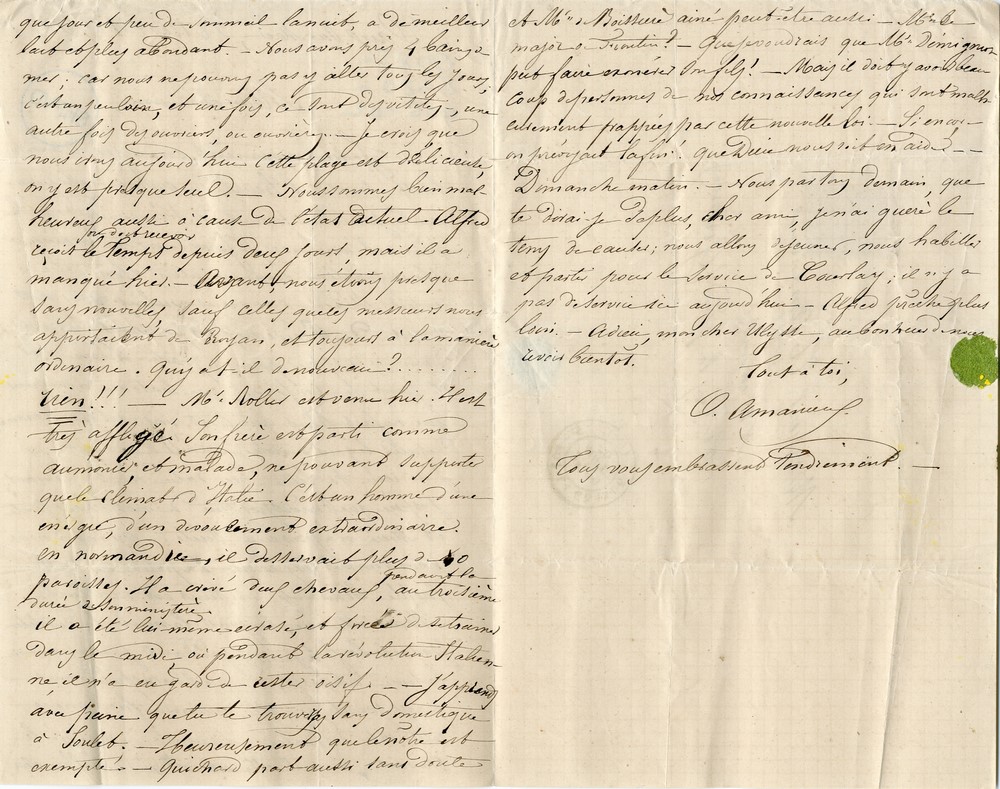 que jour et peu de sommeil la nuit, a de meilleur
lait et plus abondant. — Nous avons pris 4 bains de
mer; car nous ne pouvons pas y aller tous les jours,
c'est un peu loin, et une fois, ce sont des visites, une
autre fois des ouvriers, ou ouvrières. — Je crois que
nous irons aujourd'hui. Cette plage est délicieuse,
on y est presque seul. — Nous sommes bien mal
heureux aussi à cause de l'état actuel. Alfred
ou doit recevoir
reçoit le Temps depuis deux jours, mais il a
manqué hier. — Avant, nous étions presque
sans nouvelles sauf celles que les messieurs nous
apportaient de Royan, et toujours à la manière
ordinaire. Qu'y a-t-il de nouveau? ........
rien!!! — Mr. Roller est venu hier. Il est
très affligé. Son frère est parti comme
aumônier et malade, ne pouvant supporter
que le climat d'Italie. C'est un homme d'une
énergie, d'un dévouement extraordinaire.
en normandie, il desservait plus de 40
paroisses. Il a crevé deux chevaux, au troisième
pendant la
durée de son ministère
il a été lui même écrasé, et forcé de se traîner
dans le midi, où pendant la révolution Italien-
ne il n'a eu garde de rester oisif. — J'apprends
avec peine que tu te trouves sans domestique
à Soulet. — Heureusement que le nôtre est
exempté. — Guichard part aussi sans doute
et Mr. Boissière ainé peut-être aussi — Mr. le
major a Frontin? — Que je voudrais que Mr. Démignon
put faire exonérer son fils! — Mais il doit y avoir beau
coup de personnes de nos connaissances qui sont malh
eureusement frappées par cette nouvelle loi. — Si encor-
on prévoyait la fin! que Dieu nous soit en aide. —
Dimanche matin. — Nous partons demain, que
te dirai-je de plus, cher ami, je n'ai guère le
tems de causer; nous allons déjeuner, nous habiller
et partir pour le service de Courlay; il n'y a
pas de service ici aujourd'hui — Alfred prêche plus
loin. — Adieu, mon cher Ulysse, au bonheur de nous
revoir bientôt.
Tout à toi,
O. Amanieux
Tous vous embrassent tendrement. —